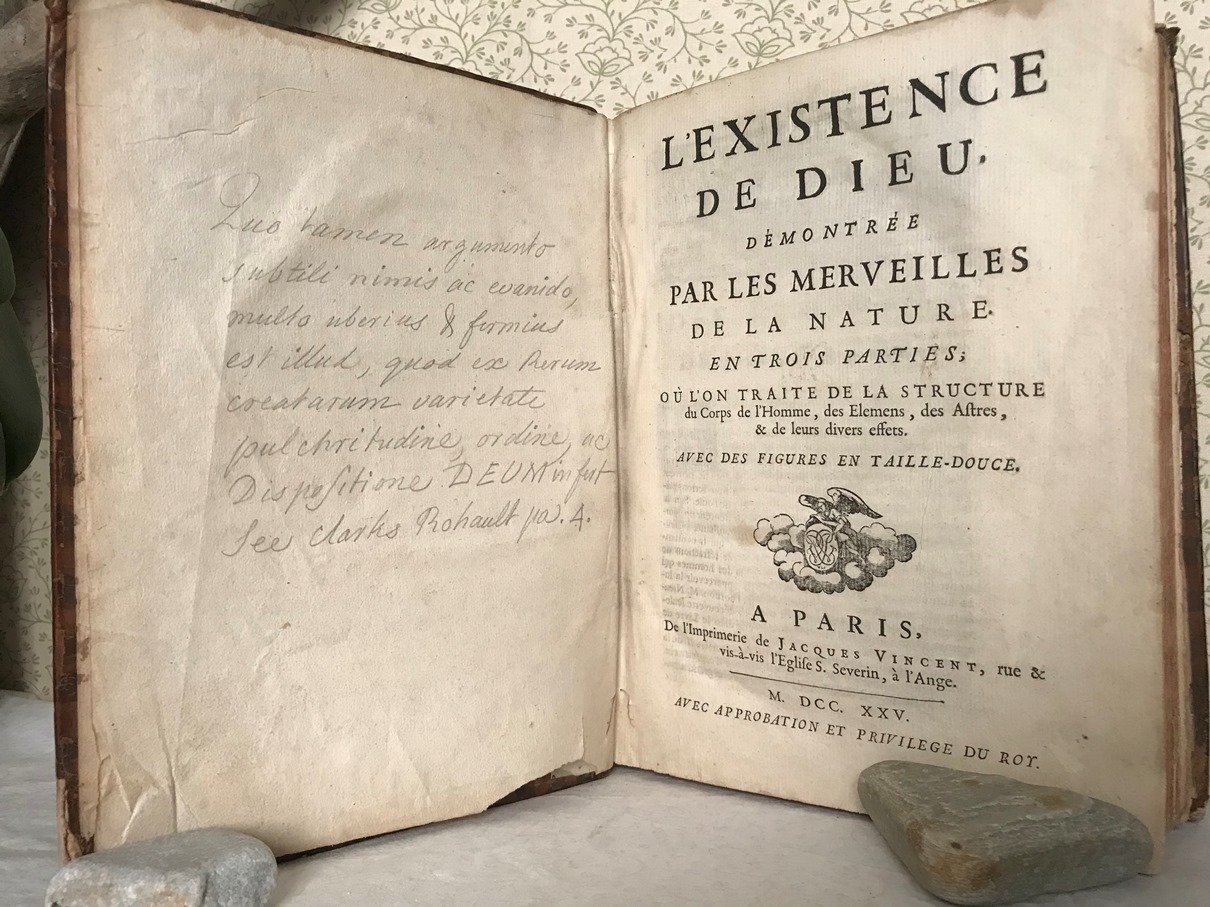 Quo tamen argumento
subtili nimis ac evanido,
multo uberius & firmius
est illud, quod ex Rerum
creatarum varietate
pulchritudine, ordine, ac
Dispositione DEUM infert
See Clarks Rohault pa. 4.
L'EXISTENCE
DE DIEU,
DÉMONTRÉE
PAR LES MERVEILLES
DE LA NATURE.
EN TROIS PARTIES;
OÙ L'ON TRAITE DE LA STRUCTURE
du Corps de l'Homme, des Elemens, des Aſtres,
& de leurs divers effets.
AVEC DES FIGURES EN TAILLE-DOUCE.
A PARIS,
De l'Imprimerie de JACQUES VINCENT, rue &
vis-à-vis l'Egliſe S. Severin, à l'Ange.
M. DCC. XXV.
AVEC APPROBATION ET PRIVILEGE DU ROY.